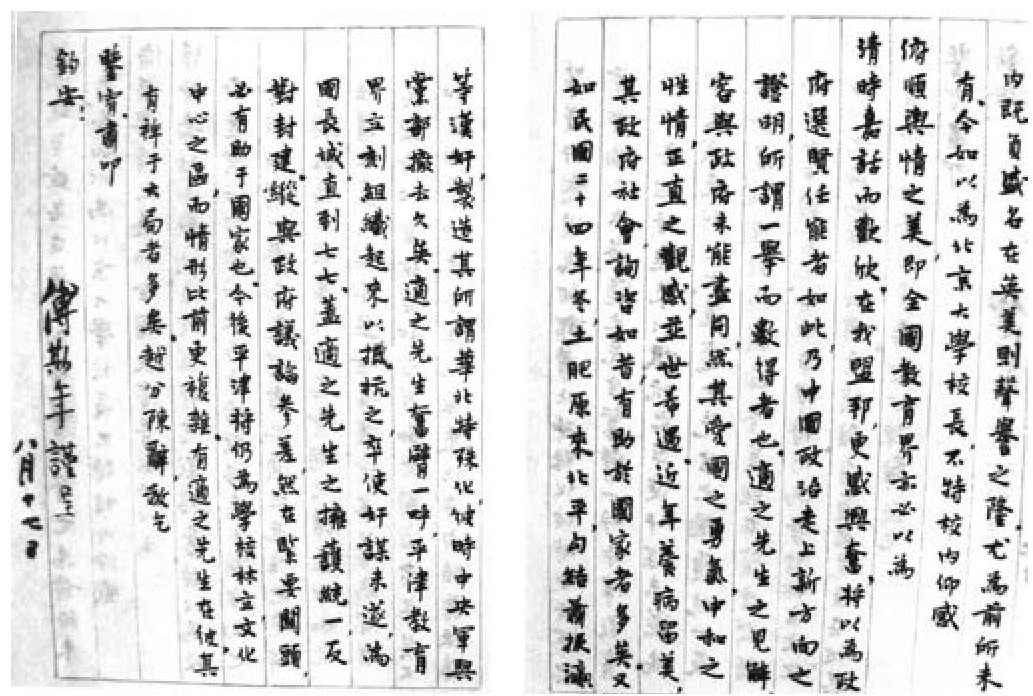 內既負盛名在英美則聲譽之隆尤為前所未
有今如以為北京大學校長不特校內仰感
俯順輿情之美即全國教育界亦必以為
清時嘉話而歡欣在我盟邦更感興奮將以為政
府選賢任能者如此乃中國政治走上新方向之
證明所謂一舉而數得者也適之先生之見解
容與政府未能盡同然其愛國之勇氣中和之
性情正直之觀感並世希遇近年養病留美
其政府社會詢咨如昔有助於國家者多矣又
如民國二十四年冬土肥原來北平勾結蕭振瀛
等漢奸製造其所謂華北特殊化彼時中央軍與
黨部撤去久矣適之先生奮臂一呼平津教育
界立刻組織起來以抵抗之卒使奸謀未遂為
國長城直到七七蓋適之先生之擁護統一反
對封建縱與政府議論參差然在緊要關頭
必有助于國家也今後平津將仍為學校林立文化
中心之區而情形比前更複雜有適之先生在彼其
有裨于大局者多矣越分陳辭敬乞
鑒宥肅叩
鈞安
傅斯年謹呈
八月十七日